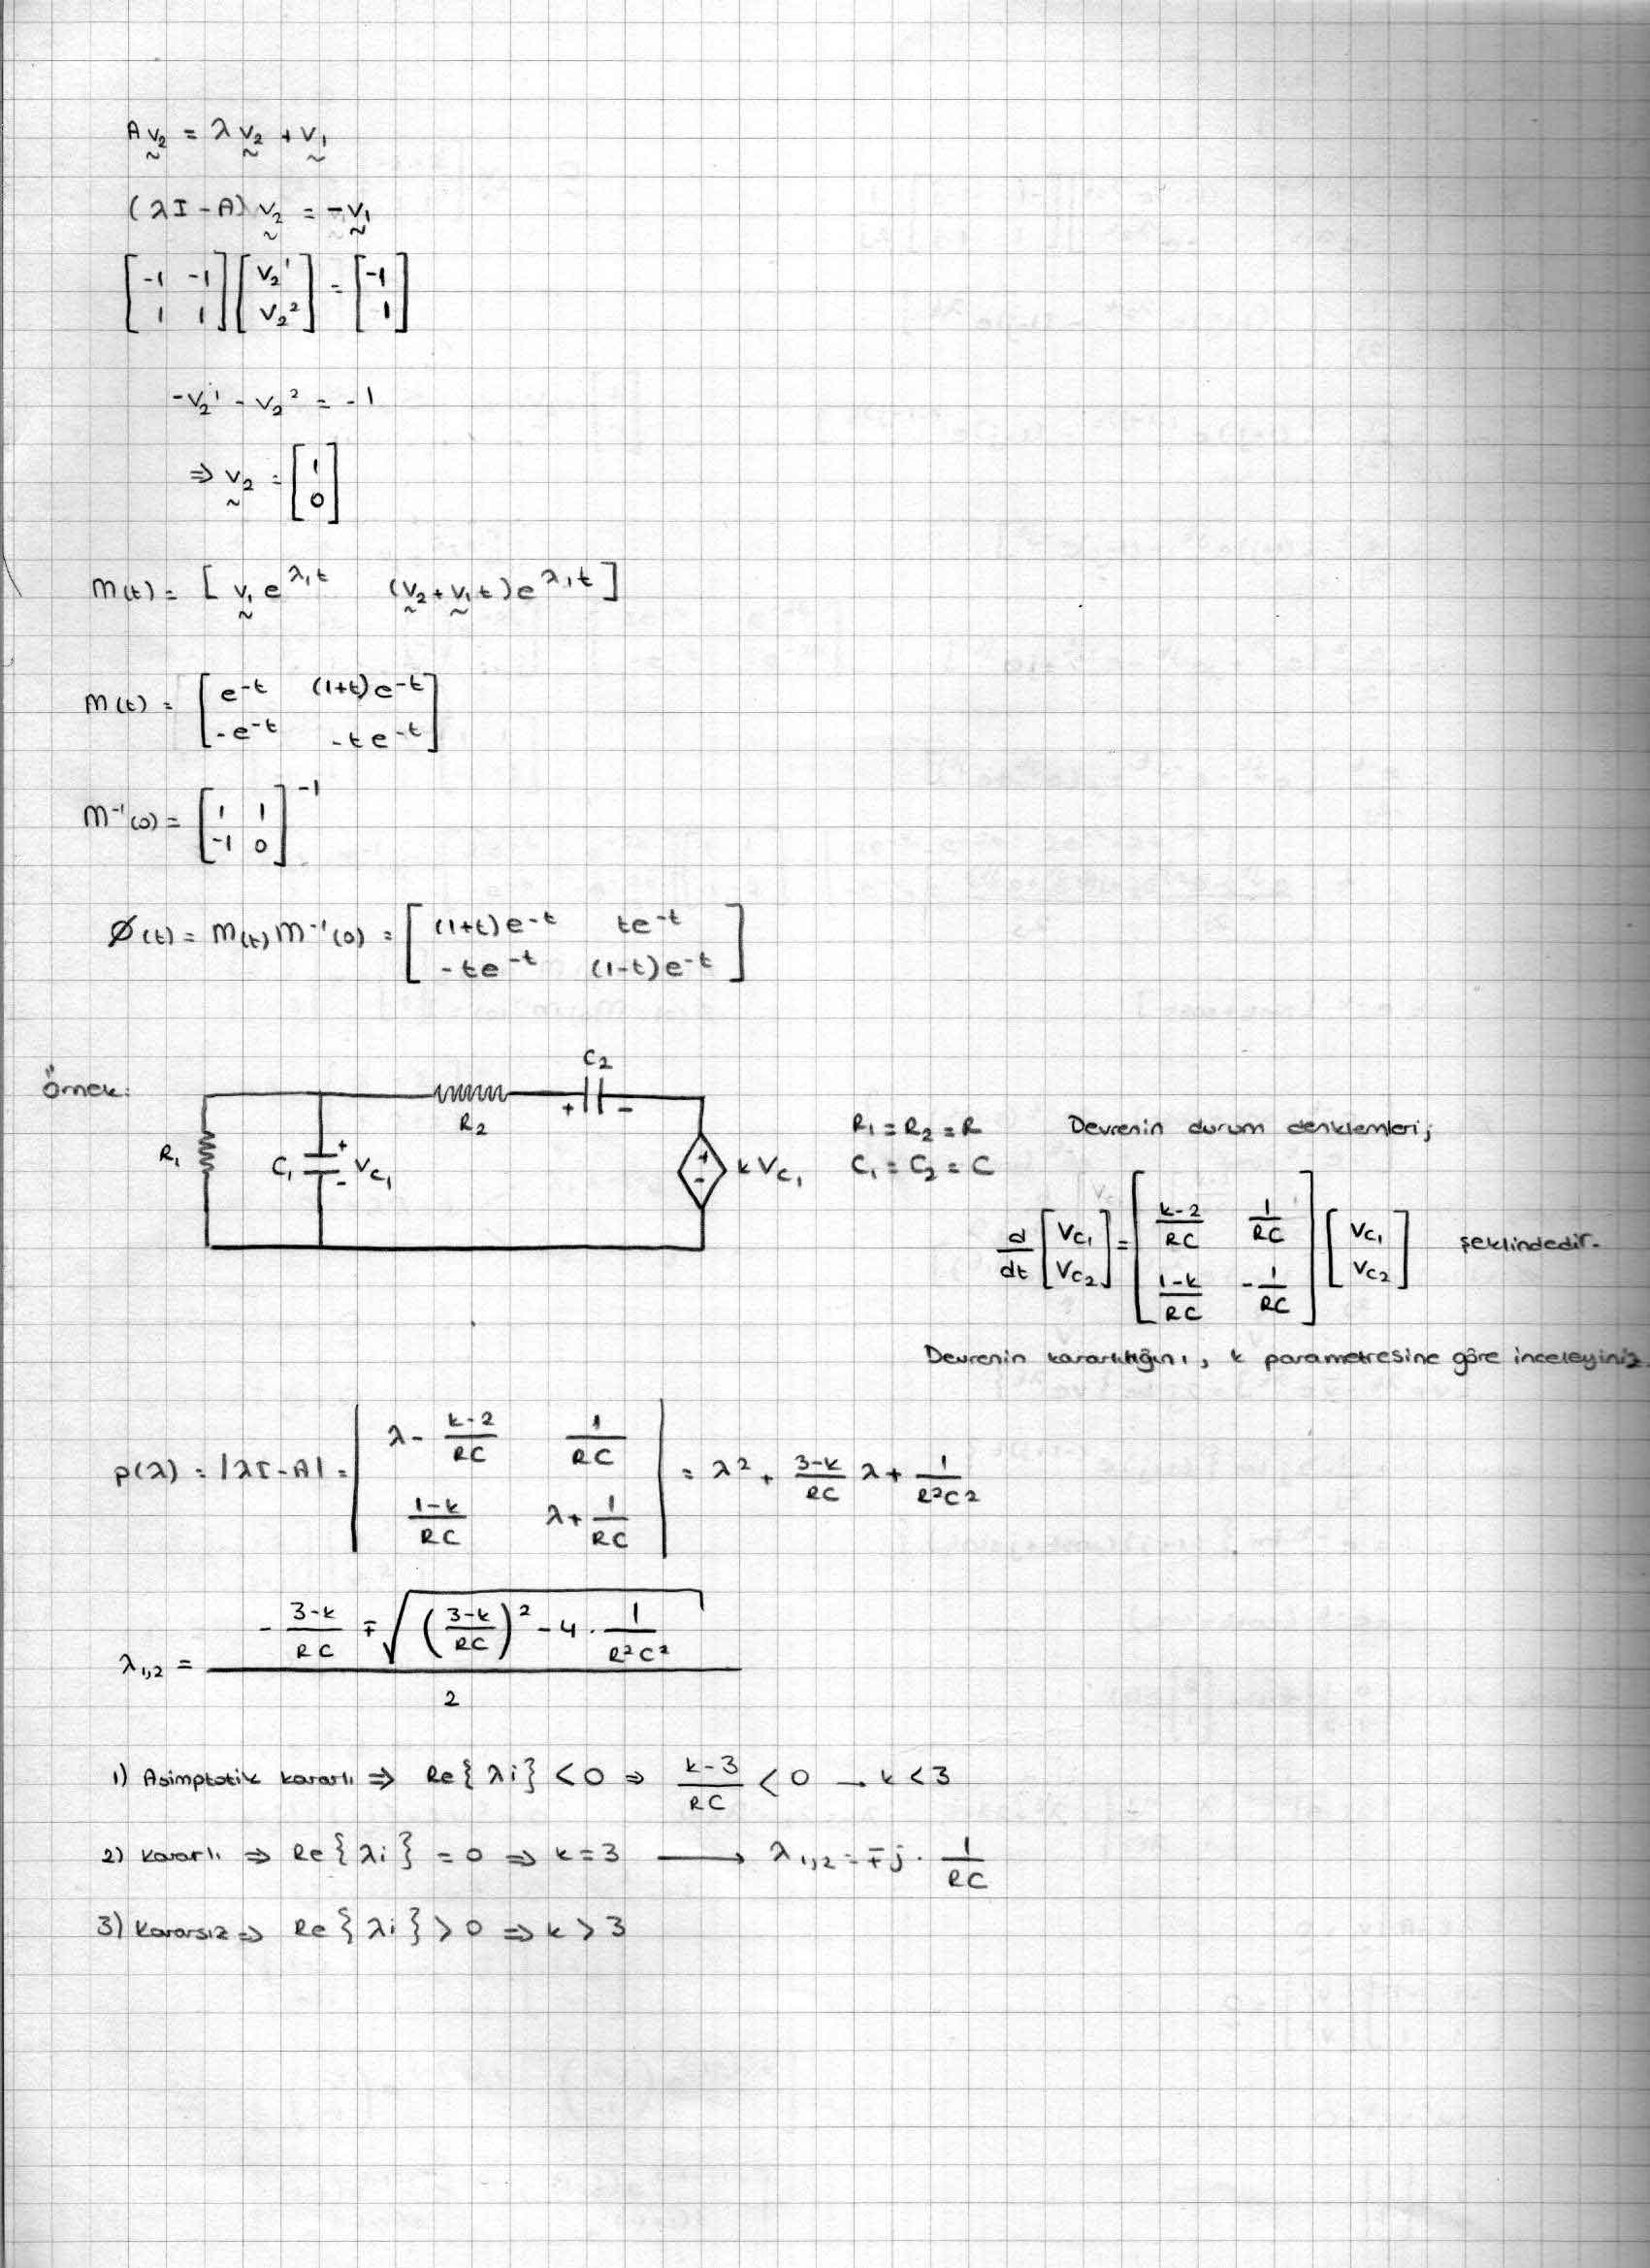 A v₂ = λ v₂ + v₁
(λI - A) v₂ = -v₁
[-1 -1; 1 1] [v₂¹; v₂²] = [-1; 1]
-v₂¹ - v₂² = -1
⇒ v₂ = [1; 0]
M(t) = [v₁ e^{λ₁t} (v₂ + v₁t) e^{λ₁t}]
M(t) = [e^{-t} (1+t)e^{-t}; -e^{-t} -te^{-t}]
M⁻¹(0) = [1 1; -1 0]⁻¹
Ø(t) = M(t) M⁻¹(0) = [(1+t)e^{-t} te^{-t}; -te^{-t} (1-t)e^{-t}]
Örnek:
C₂
+ -
R₂
R₁
C₁
+
-
Vc₁
+
-
kVc₁
R₁ = R₂ = R
C₁ = C₂ = C
Devrenin durum denklemleri;
d/dt [Vc₁; Vc₂] = [(k-2)/RC 1/RC; (1-k)/RC -1/RC] [Vc₁; Vc₂] şeklindedir.
Devrenin kararlılığını, k parametresine göre inceleyiniz.
p(λ) = |λI - A| = |λ - (k-2)/RC 1/RC; (1-k)/RC λ + 1/RC| = λ² + (3-k)/RC λ + 1/R²C²
λ₁,₂ = (-(3-k)/RC ∓ √(((3-k)/RC)² - 4 · 1/R²C²)) / 2
1) Asimptotik kararlı ⇒ Re{λi} < 0 ⇒ (k-3)/RC < 0 → k < 3
2) Kararlı ⇒ Re{λi} = 0 ⇒ k = 3 ⟶ λ₁,₂ = ∓j · 1/RC
3) Kararsız ⇒ Re{λi} > 0 ⇒ k > 3